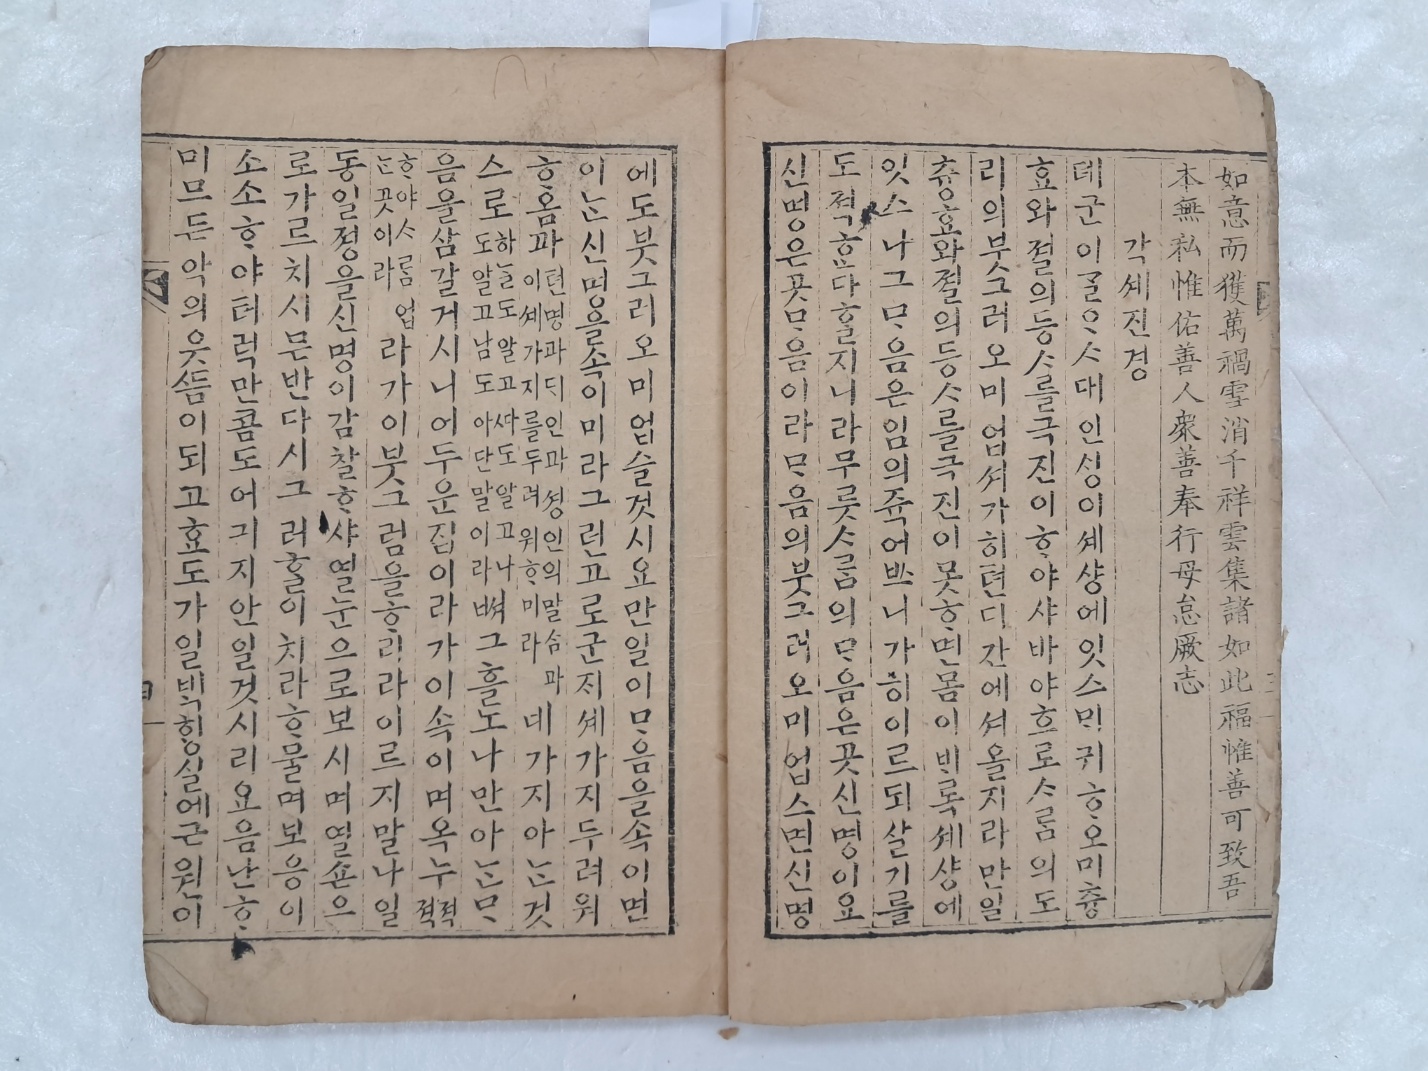 如意而獲萬禍雪消千祥雲集諸如此福惟善可致吾
本無私惟佑善人衆善奉行毋怠厥志
각셰진경
뎨군이ᄀᆞᆯᄋᆞᄉᆞ대인싱이셰샹에잇스ᄆᆡ귀ᄒᆞ오미츙
효와졀의등ᄉᆞ를극진이ᄒᆞ야샤바야흐로ᄉᆞ룸의도
리의부ᄭᅳ러오미업셔가히텬디간에셔올지라만일
츙효와졀의등ᄉᆞ를극진이못ᄒᆞ면몸이비록셰샹에
잇스나그ᄆᆞ음은임의쥭어ᄇᆞ니가히이르되살기를
도젹ᄒᆞᆫ다ᄒᆞᆯ지니라무릇ᄉᆞ룸의ᄆᆞ음은곳신명이요
신명은곳ᄆᆞ음이라ᄆᆞ음의붓그러오미업스면신명
에도붓그러오미업슬것시요만일이ᄆᆞ음을속이면
이ᄂᆞᆫ신명을속이미라그런고로군ᄌᆡ셰가지두려워
ᄒᆞ옴과
텬명과ᄃᆡ인과셩인의말숨과
이셰가지를두려워ᄒᆞ미라
네가지아ᄂᆞᆫ것
스로
하ᄂᆞᆯ도알고ᄯᅡ도알고나
도알고남도아단말이라
ᄲᅥ그흘노나만아ᄂᆞᆫᄆᆞ
음을삼갈거시니어두운집이라가이속이며옥누
젹
젹
ᄒᆞ야ᄉᆞ룸업
ᄂᆞᆫ곳이라
라가이붓그럼을ᄒᆞ리라이르지말나일
동일졍을신명이감찰ᄒᆞ샤열눈으로보시며열손으
로가르치시믄반다시그러ᄒᆞᆯ이치라ᄒᆞ물며보응이
소소ᄒᆞ야터럭만콤도어긔지안일것시리요음난ᄒᆞ
미므든악의웃듬이되고효도가일ᄇᆡᆨᄒᆡᆼ실에근원이